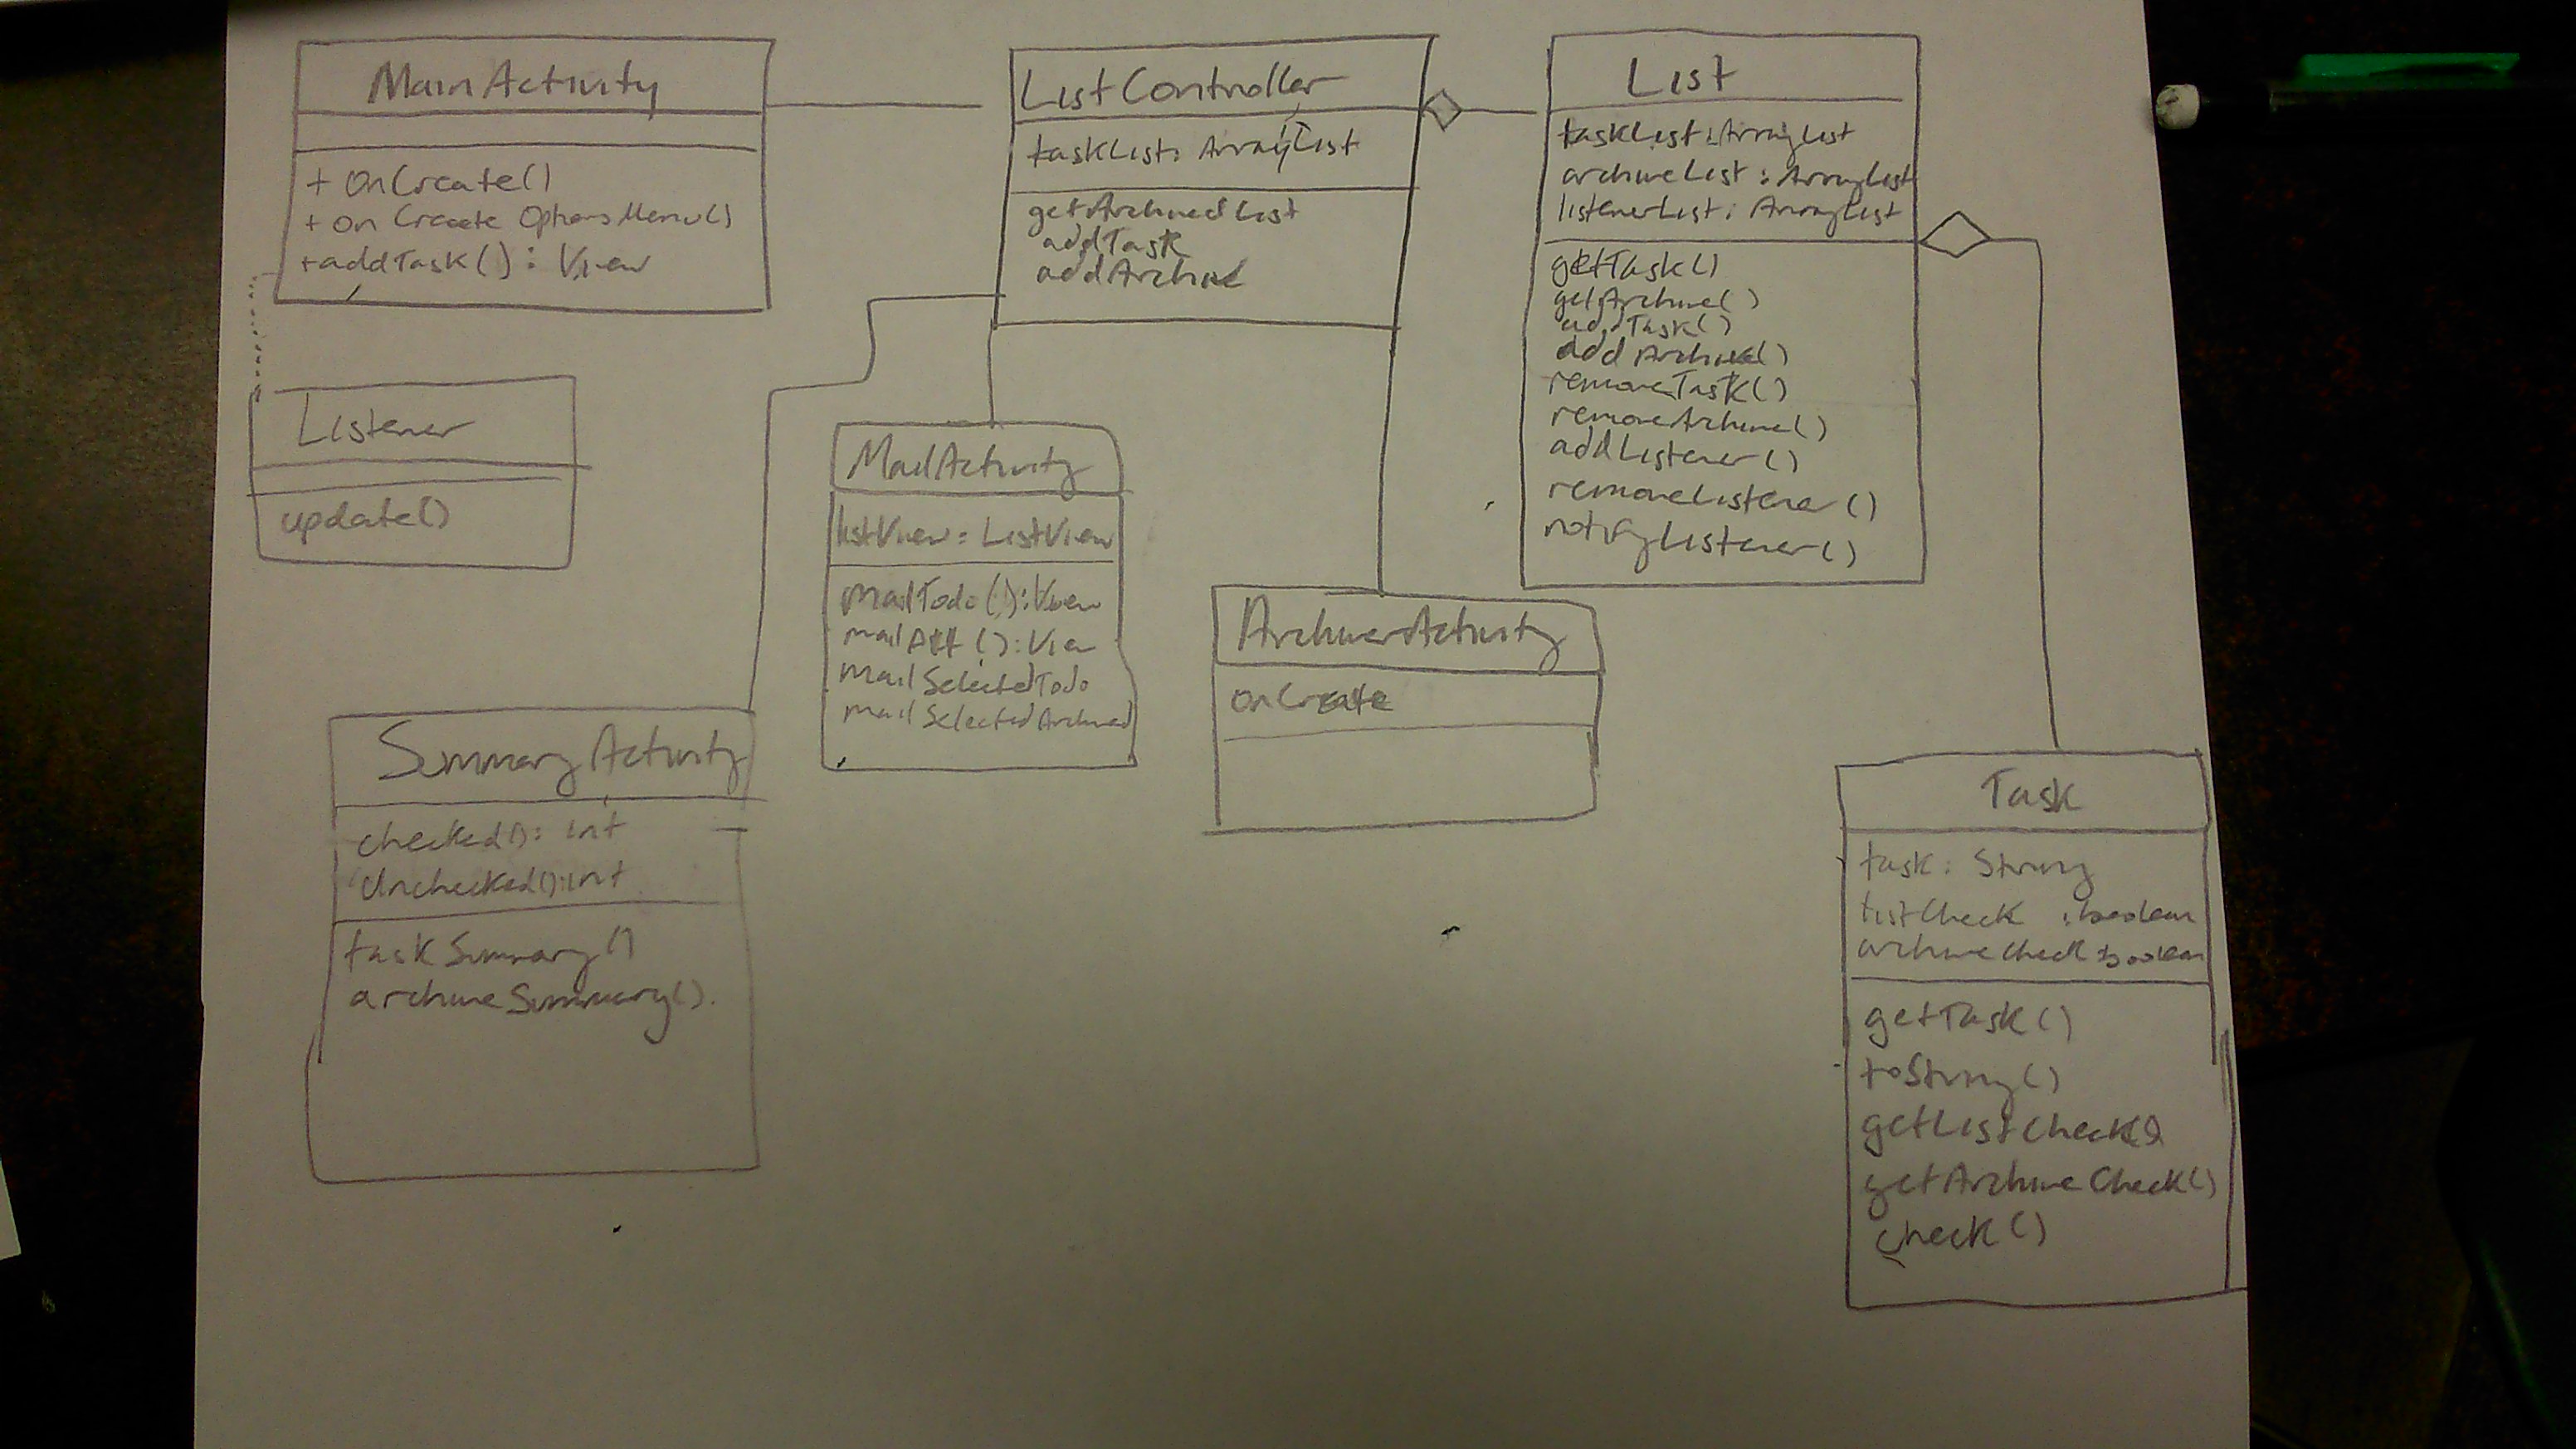 MainActivity
+ onCreate()
+ on Create OptionsMenu()
+addTask() : View
ListController
taskList: ArrayList
getArchivedList
addTask
addArchive
List
taskList: ArrayList
archiveList : ArrayList
listenerList: ArrayList
getTask()
getArchive()
addTask()
addArchive()
removeTask()
removeArchive()
addListener()
removeListener()
notifyListener()
Listener
update()
MailActivity
listView: ListView
mailTodo(): View
mail (): View
mailSelectedTodo
mailSelectedArchived
ArchiverActivity
onCreate
SummaryActivity
checked(): int
Unchecked(): int
taskSummary()
archiveSummary()
Task
task: String
listCheck : boolean
archiveCheck: boolean
getTask()
toString()
getListCheck()
getArchiveCheck()
check()